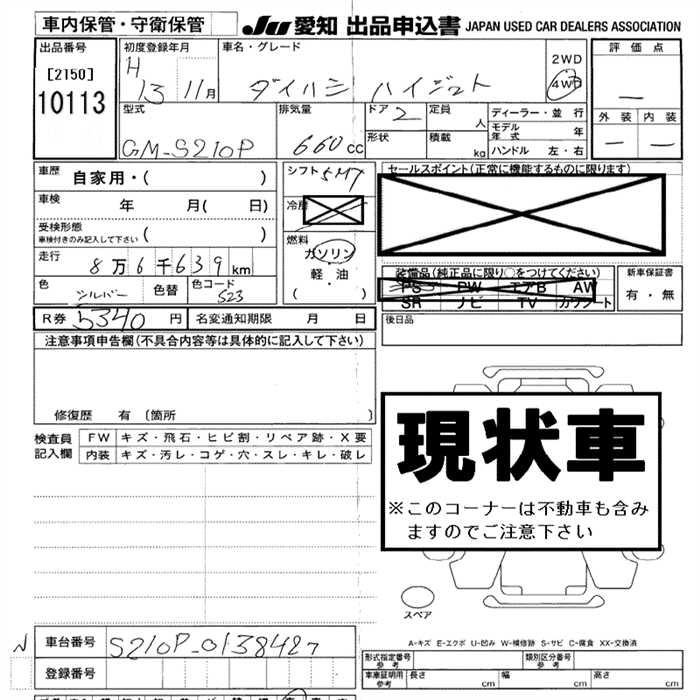 車内保管・守衛保管
JU 愛知 出品申込書 JAPAN USED CAR DEALERS ASSOCIATION
出品番号 初度登録年月 車名・グレード 評価点
[2150] H 2WD
10113 13 11月 ダイハツ ハイゼット 4WD —
型式 排気量 ドア 2 定員 人 ディーラー・並行 外装 内装
GM-S210P 660cc 形状 積載 kg モデル年式 年 — —
ハンドル 左・右
車歴 自家用・( ) シフト 5MT セールスポイント(正常に機能するものに限ります)
車検 年 月( 日) 冷房
受検形態 ( )
車検付きのみ記入して下さい
燃料
走行 8万6千639km ガソリン 装備品(純正品に限り○をつけてください) 新車保証書
軽・油 PS PW エアB AW 有・無
色 シルバー 色替 色コード S23 ( ) SR ナビ TV カワシート
R券 5340円 名変通知期限 月 日 後日品
注意事項申告欄(不具合内容等は具体的に記入して下さい)
修復歴 有〔箇所 〕
現状車
※このコーナーは不動車も含み
ますのでご注意下さい
検査員 FW キズ・飛石・ヒビ割・リペア跡・X要
記入欄 内装 キズ・汚レ・コゲ・穴・スレ・キレ・破レ
スペア
A-キズ E-エクボ U-凹み W-補修跡 S-サビ C-腐食 XX-交換済
N 車台番号 S210P-0138427
形式指定番号 参考 類別区分番号 参考
登録番号 車庫証明用 参考 長さ 幅 高さ